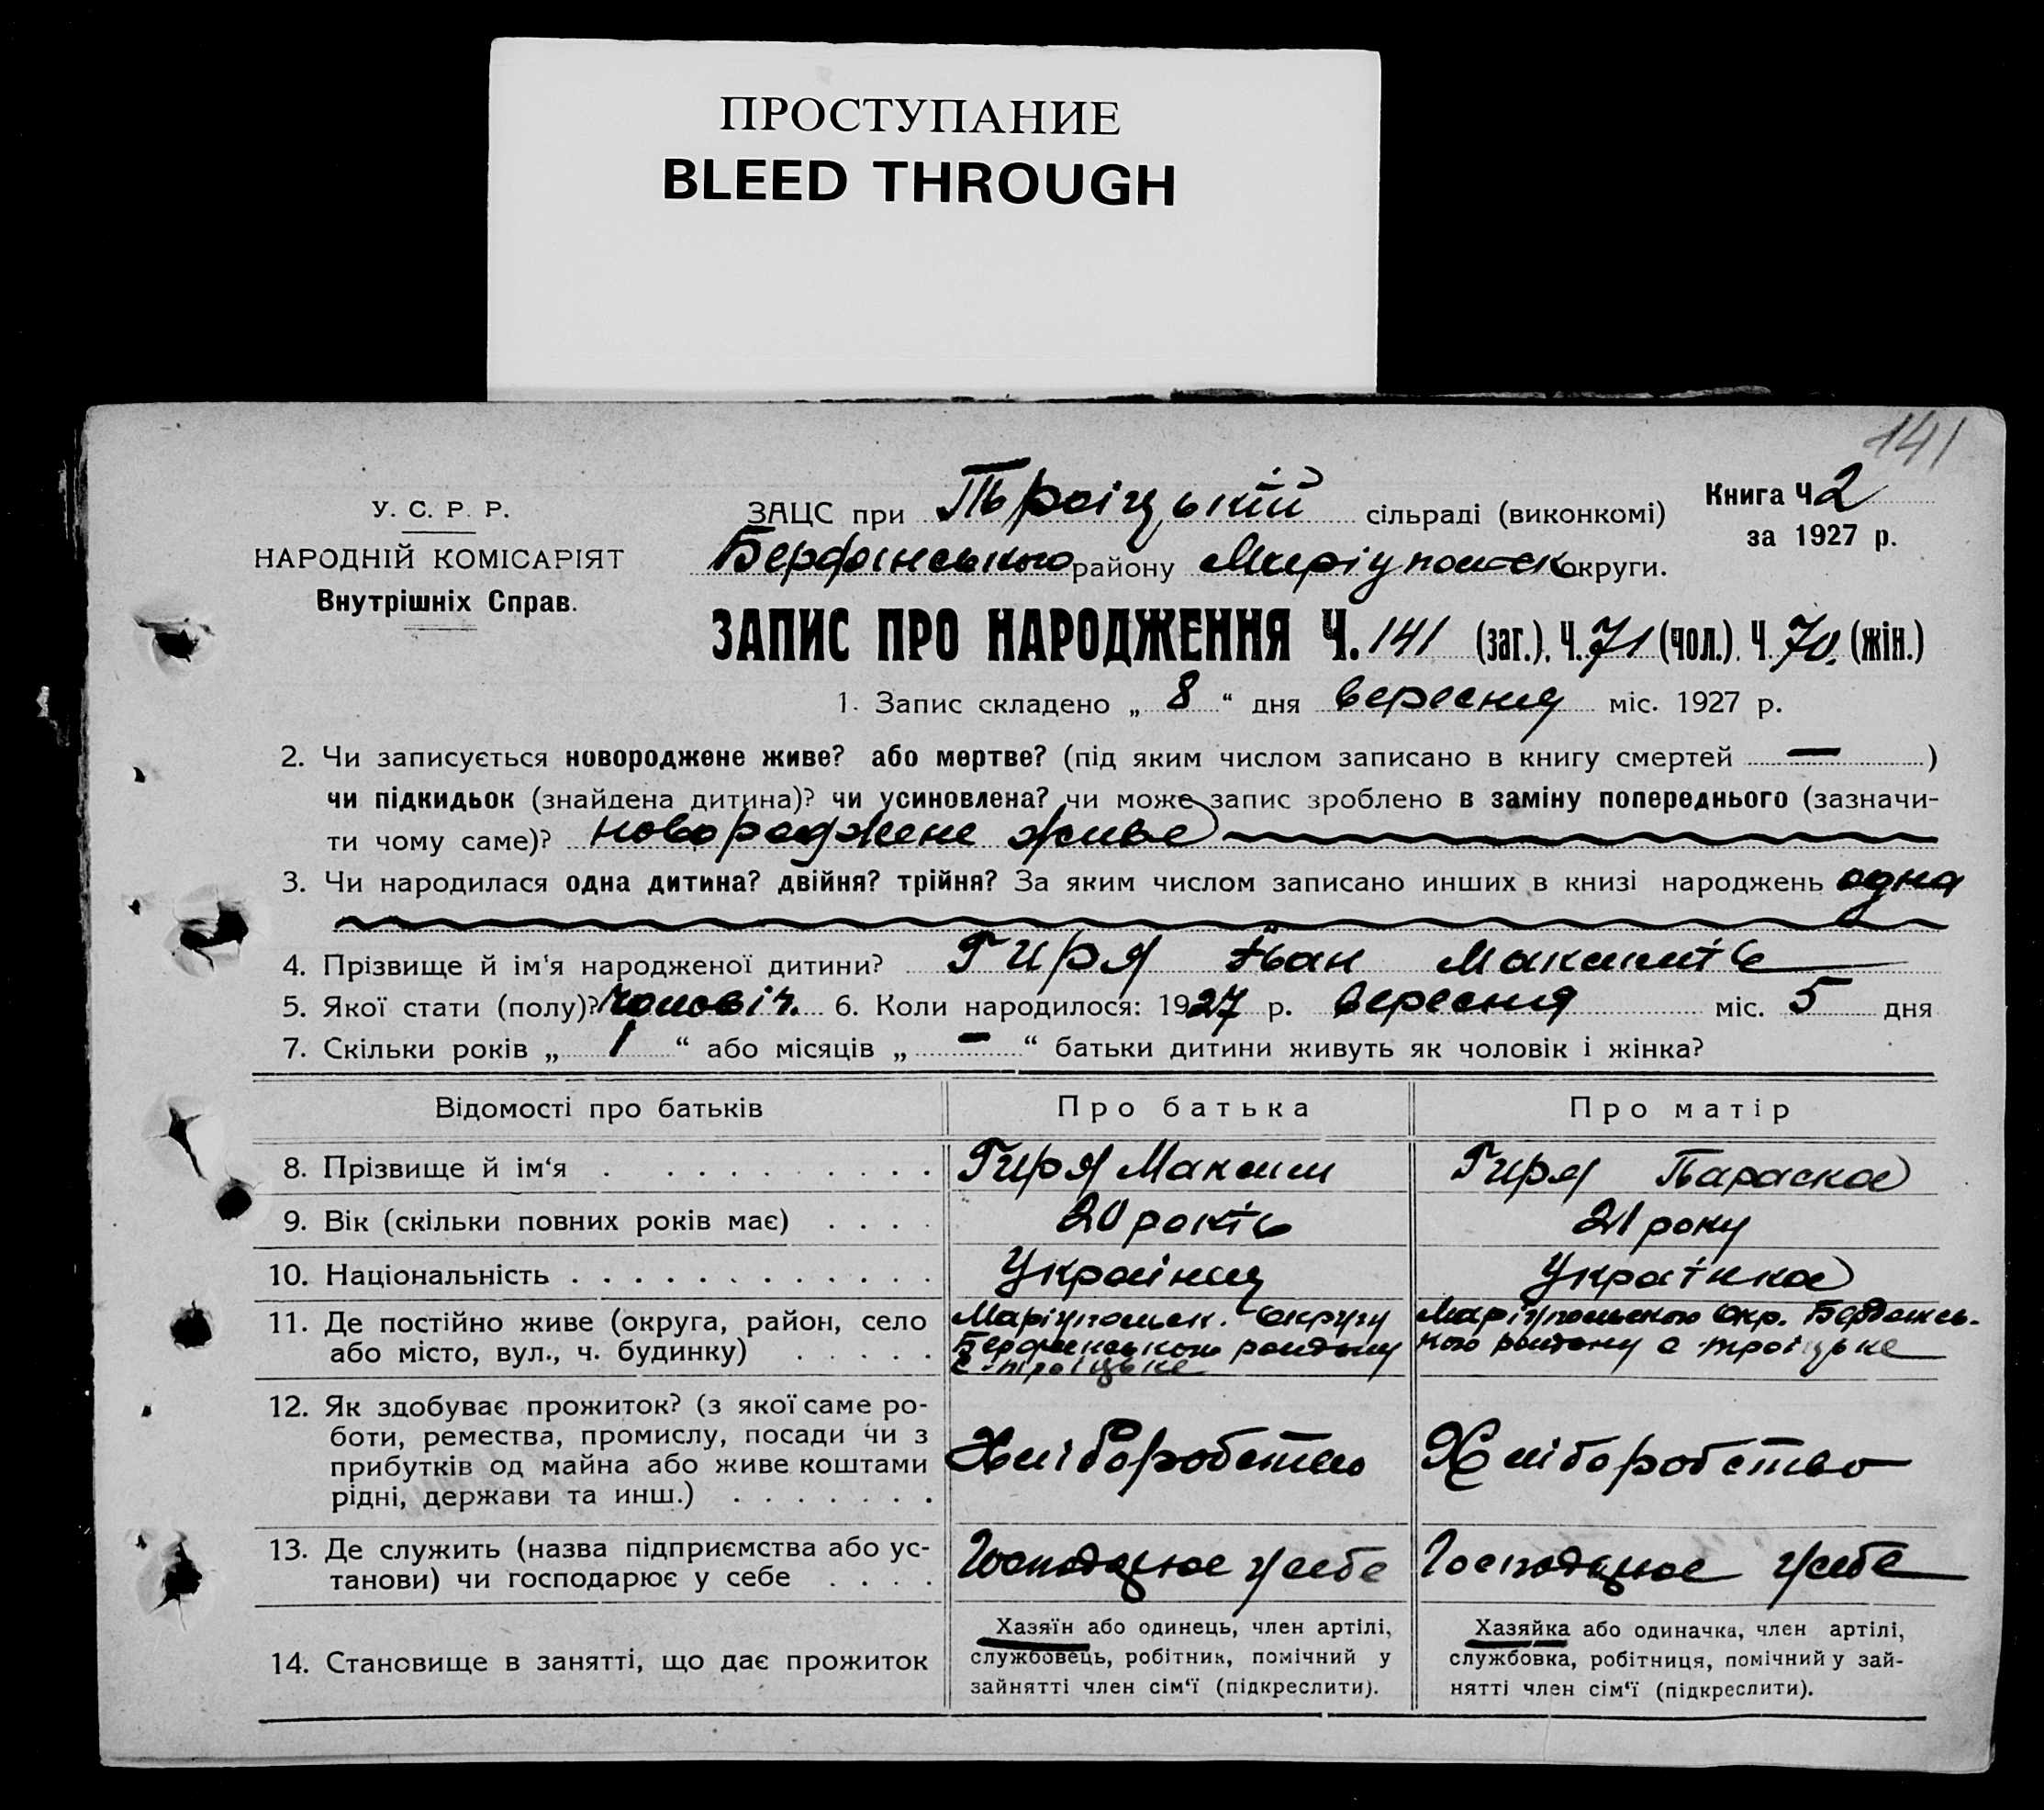 ПРОСТУПАНИЕ
BLEED THROUGH
141
У. С. Р. Р.
НАРОДНІЙ КОМІСАРІЯТ
Внутрішніх Справ.
ЗАЦС при Троіцькій сільраді (виконкомі)
Книга Ч 2
за 1927 р.
Бердянського району Маріупольськ округи.
ЗАПИС ПРО НАРОДЖЕННЯ Ч. 141 (заг.), Ч. 71 (чол.). Ч. 70. (жін.)
1. Запис складено „ 8 “ дня вересня міс. 1927 р.
2. Чи записується новороджене живе? або мертве? (під яким числом записано в книгу смертей — )
чи підкидьок (знайдена дитина)? чи усиновлена? чи може запис зроблено в заміну попереднього (зазначи-
ти чому саме)? новороджене живе
3. Чи народилася одна дитина? двійня? трійня? За яким числом записано инших в книзі народжень одна
4. Прізвище й ім‘я народженої дитини? Гиря Іван Максимів
5. Якої стати (полу)? чоловіч. 6. Коли народилося: 1927 р. вересня міс. 5 дня
7. Скільки років „ 1 “ або місяців „ — “ батьки дитини живуть як чоловік і жінка?
Відомості про батьків Про батька Про матір
8. Прізвище й ім‘я . . . . . . . . . . Гиря Максим Гиря Параска
9. Вік (скільки повних років має) . . . . 20 років 21 року
10. Національність . . . . . . . . . . . . Украінец Украінка
11. Де постійно живе (округа, район, село
або місто, вул., ч. будинку) . . . . .
Маріупольск. округу
Бердянського району
с Троіцьке
Маріупольского Окр. Бердянсь-
кого району с Троіцьке
12. Як здобуває прожиток? (з якої саме ро-
боти, ремества, промислу, посади чи з
прибутків од майна або живе коштами
рідні, держави та инш.) . . . . . . .
Хліборобство
Хліборобство
13. Де служить (назва підприємства або ус-
танови) чи господарює у себе . . . .
Господарює у себе
Господарює у себе
14. Становище в занятті, що дає прожиток
Хазяїн або одинець, член артілі,
службовець, робітник, помічний у
зайнятті член сім‘ї (підкреслити).
Хазяйка або одиначка, член артілі,
службовка, робітниця, помічний у зай-
нятті член сім‘ї (підкреслити).